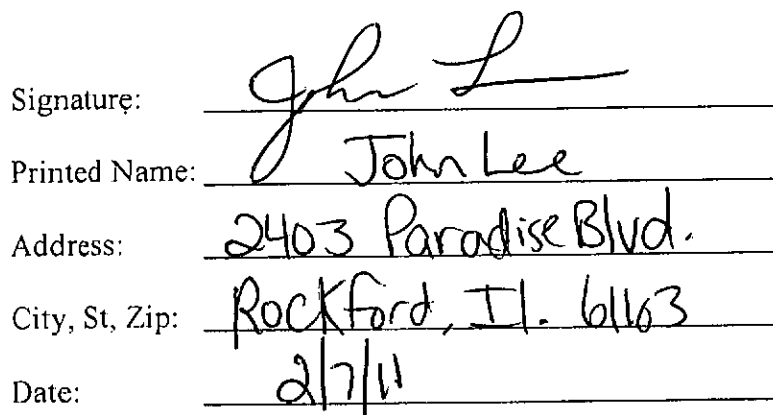 Signature: John L
Printed Name: John Lee
Address: 2403 Paradise Blvd.
City, St, Zip: Rockford, Il. 61103
Date: 2/7/11